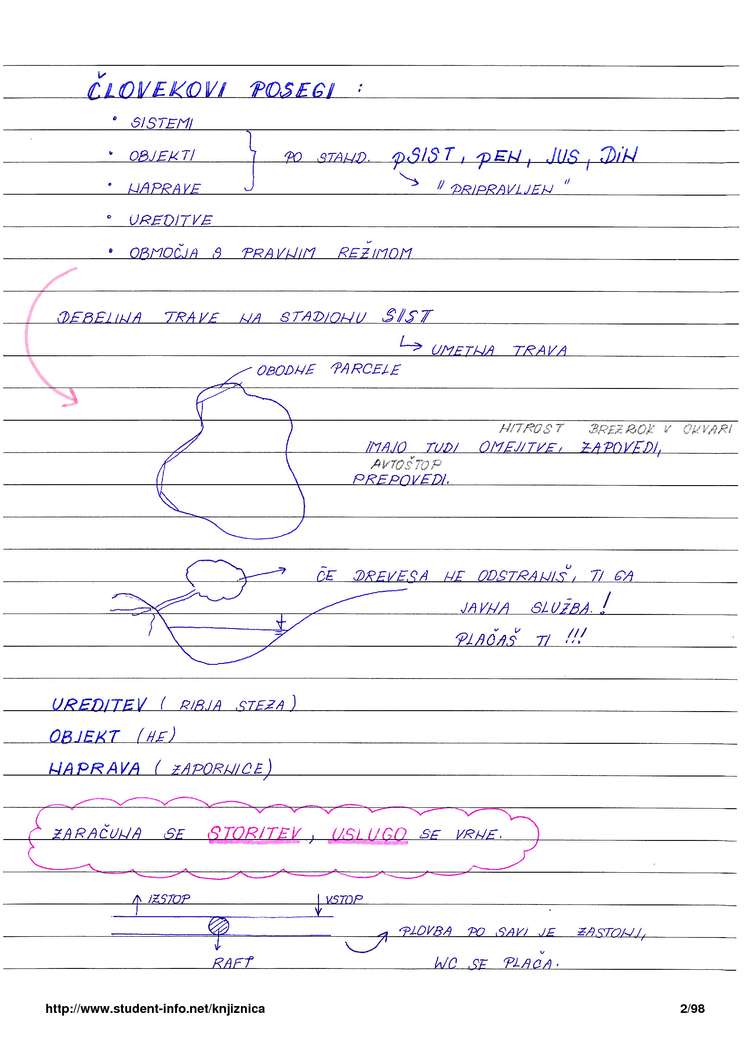 ČLOVEKOVI POSEGI :
• SISTEMI
• OBJEKTI PO STAND. pSIST, pEN, JUS, DIN
• NAPRAVE "PRIPRAVLJEN"
• UREDITVE
• OBMOČJA S PRAVNIM REŽIMOM
DEBELINA TRAVE NA STADIONU SIST
UMETNA TRAVA
OBODNE PARCELE
HITROST BREZBOK V OKVARI
IMAJO TUDI OMEJITVE, ZAPOVEDI,
AVTOŠTOP
PREPOVEDI.
ČE DREVESA NE ODSTRANIŠ, TI GA
JAVNA SLUŽBA.!
PLAČAŠ TI !!!
UREDITEV (RIBJA STEZA)
OBJEKT (HE)
NAPRAVA (ZAPORNICE)
ZARAČUNA SE STORITEV, USLUGO SE VRNE.
IZSTOP VSTOP
PLOVBA PO SAVI JE ZASTONJ,
RAFT WC SE PLAČA.
http://www.student-info.net/knjiznica 2/98